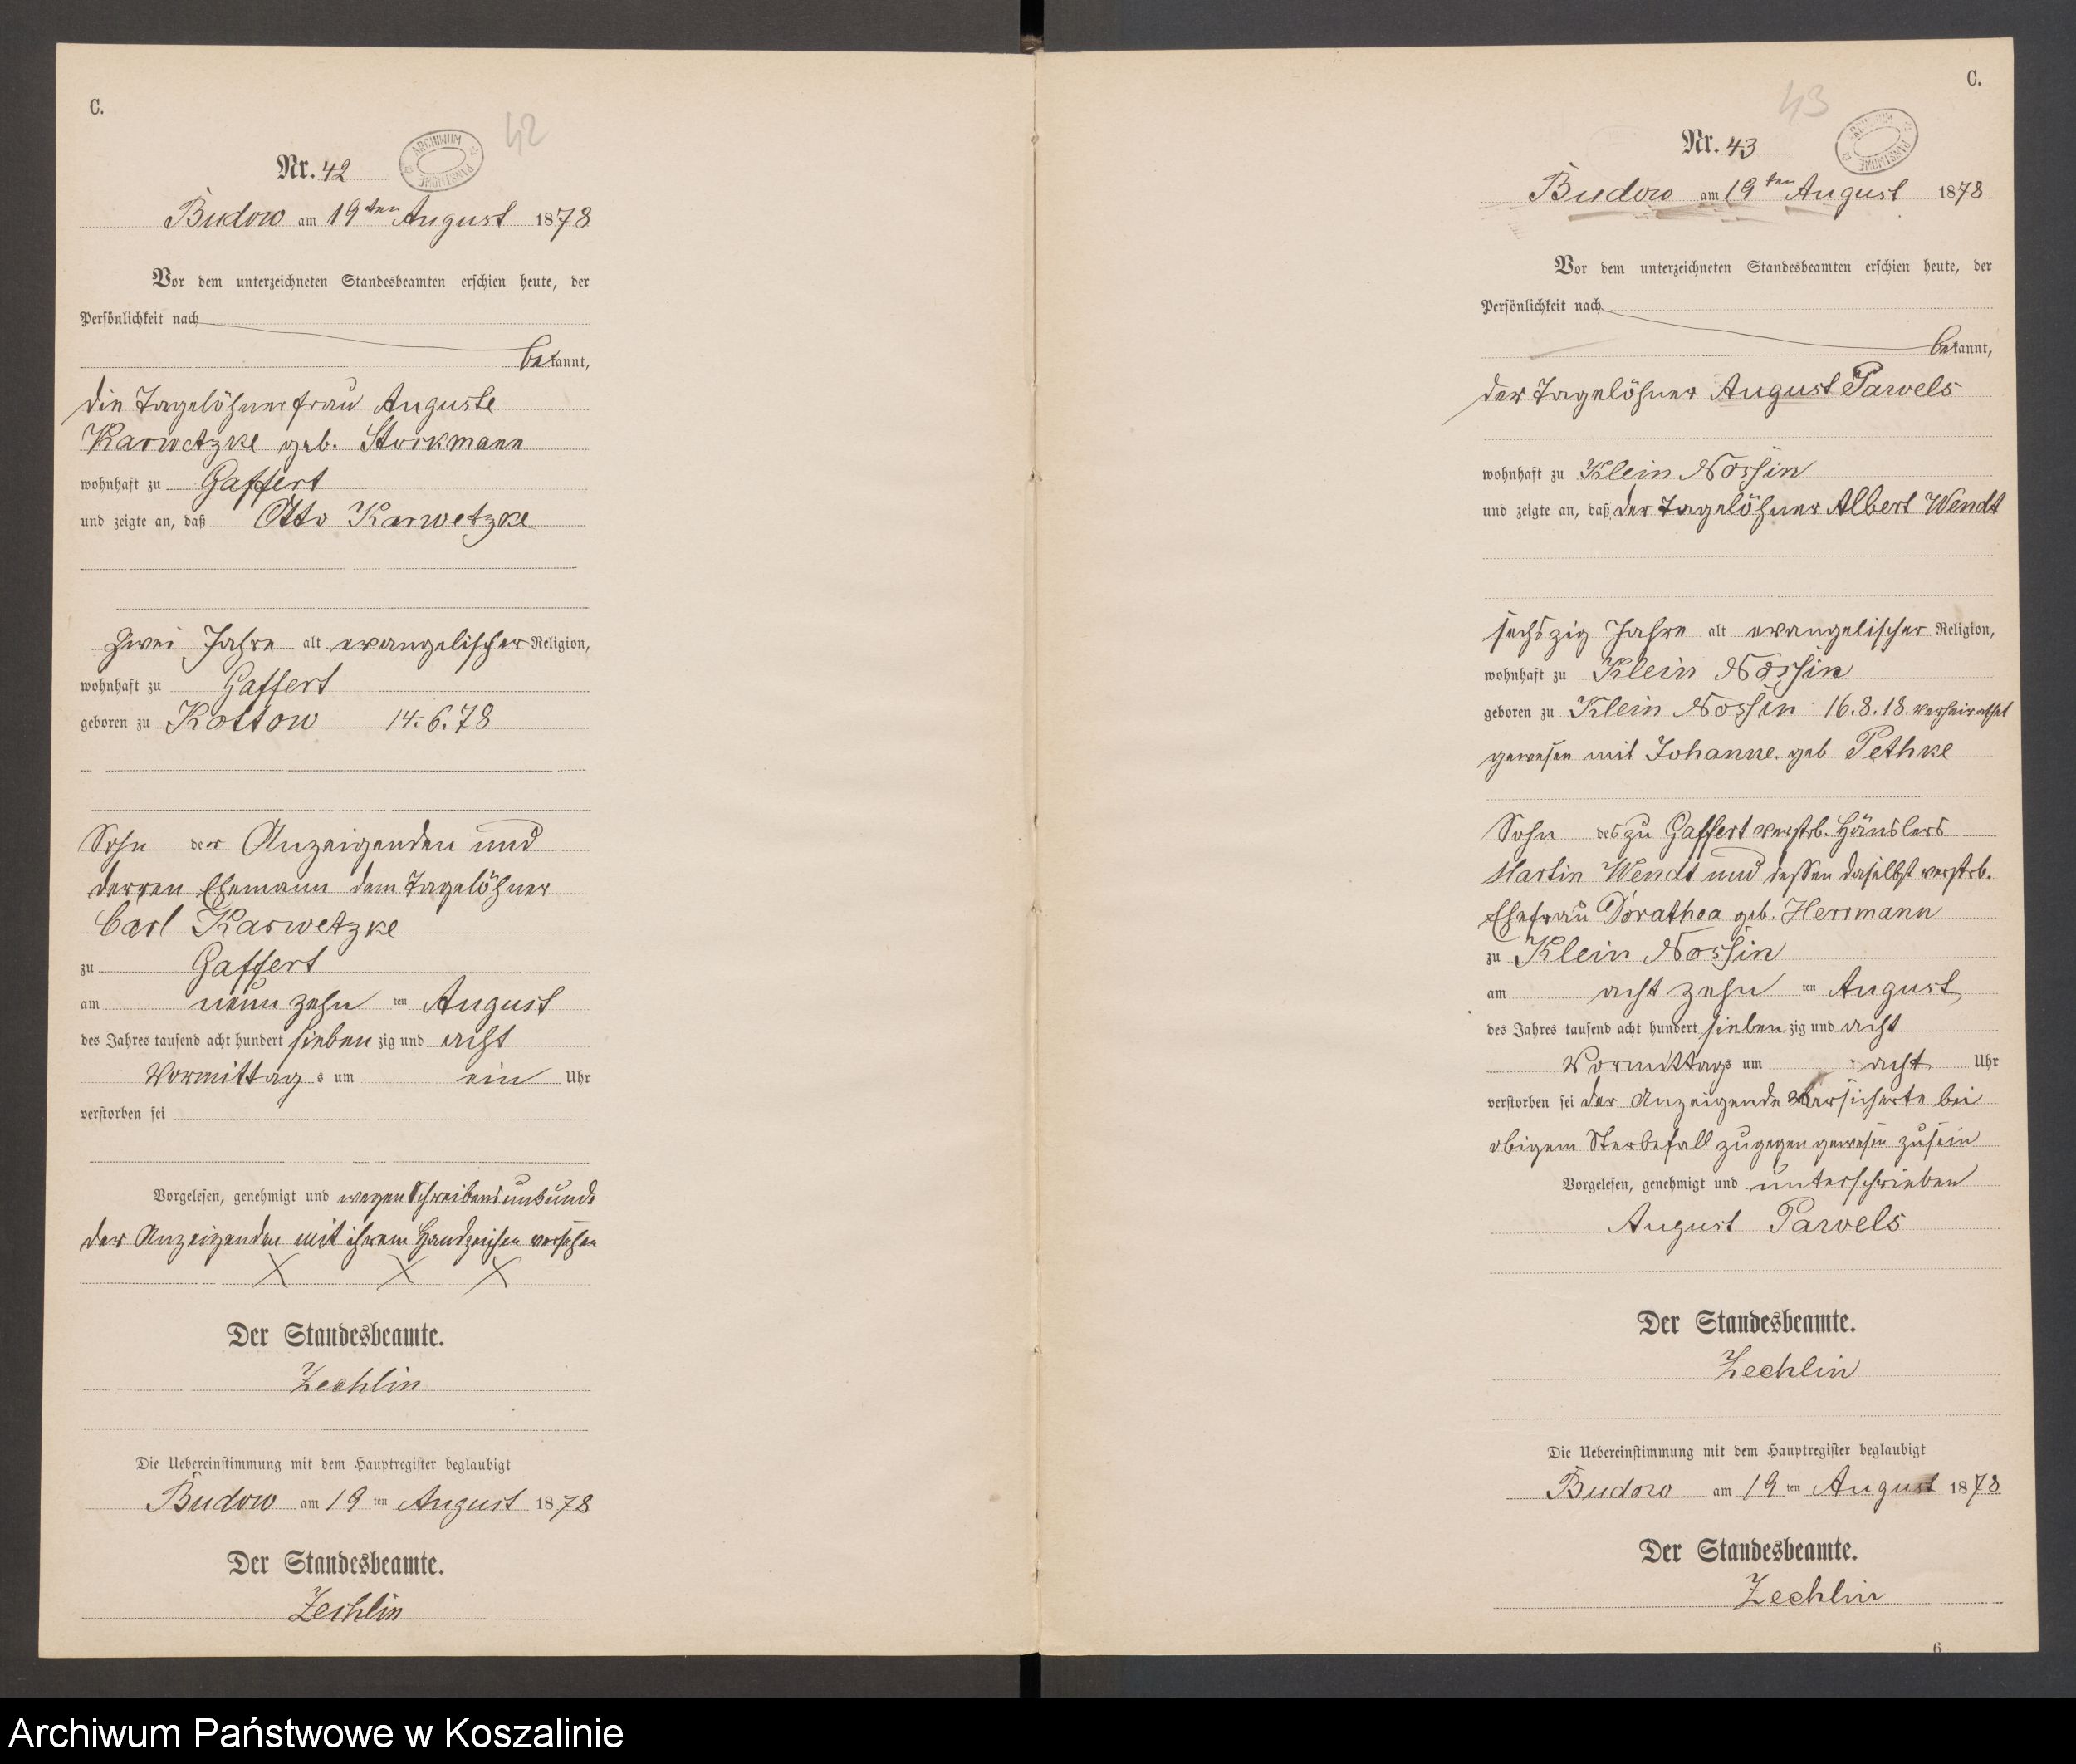 C.
42
Nr. 42
ARCHIWUM PAŃSTWOWE
Budow am 19ten August 1878
Vor dem unterzeichneten Standesbeamten erschien heute, der
Persönlichkeit nach
bekannt,
die Tagelöhnerfrau Auguste
Karwetzke geb. Storkmann
wohnhaft zu Gaffert
und zeigte an, daß Otto Karwetzke
zwei Jahre alt evangelischer Religion,
wohnhaft zu Gaffert
geboren zu Kottow 14.6.78
Sohn der Anzeigenden und
derren Ehemann dem Tagelöhner
Carl Karwetzke
zu Gaffert
am neun zehn ten August
des Jahres tausend acht hundert sieben zig und acht
Vormittag s um ein Uhr
verstorben sei
Vorgelesen, genehmigt und wegen Schreibensunkunde
der Anzeigenden mit ihrem Handzeichen versehen
X X X
Der Standesbeamte.
Zechlin
Die Uebereinstimmung mit dem Hauptregister beglaubigt
Budow am 19 ten August 1878
Der Standesbeamte.
Zechlin
C.
43
Nr. 43
ARCHIWUM PAŃSTWOWE
Budow am 19ten August 1878
Vor dem unterzeichneten Standesbeamten erschien heute, der
Persönlichkeit nach
bekannt,
der Tagelöhner August Parvels
wohnhaft zu Klein Nossin
und zeigte an, daß der Tagelöhner Albert Wendt
sechszig Jahre alt evangelischer Religion,
wohnhaft zu Klein Nossin
geboren zu Klein Nossin 16.8.18. verheirathet
gewesen mit Johanne geb Pethke
Sohn des zu Gaffert verstrb. Häuslers
Martin Wendt und dessen daselbst verstrb.
Ehefrau Dorathea geb. Herrmann
zu Klein Nossin
am acht zehn ten August
des Jahres tausend acht hundert sieben zig und acht
Vormittags um acht Uhr
verstorben sei der Anzeigende versicherte bei
obigem Sterbefall zugegen gewesen zu sein
Vorgelesen, genehmigt und unterschrieben
August Parvels
Der Standesbeamte.
Zechlin
Die Uebereinstimmung mit dem Hauptregister beglaubigt
Budow am 19 ten August 1878
Der Standesbeamte.
Zechlin
6
Archiwum Państwowe w Koszalinie